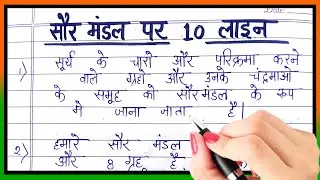 सौर मंडल पर 10 लाइन
1) सूर्य के चारो और परिक्रमा करने
वाले ग्रहो और उनके चंद्रमाओ
के समूह को सौरमंडल के रूप
मे जाना जाता है।
2) हमारे सौर मंडल
और 8 ग्रह है,